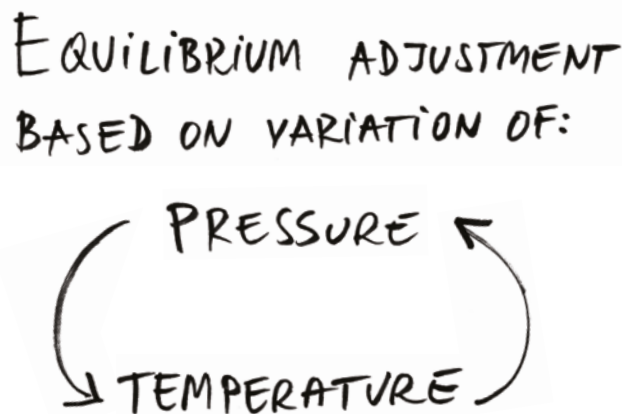 EQUILIBRIUM ADJUSTMENT
BASED ON VARIATION OF:
PRESSURE
TEMPERATURE